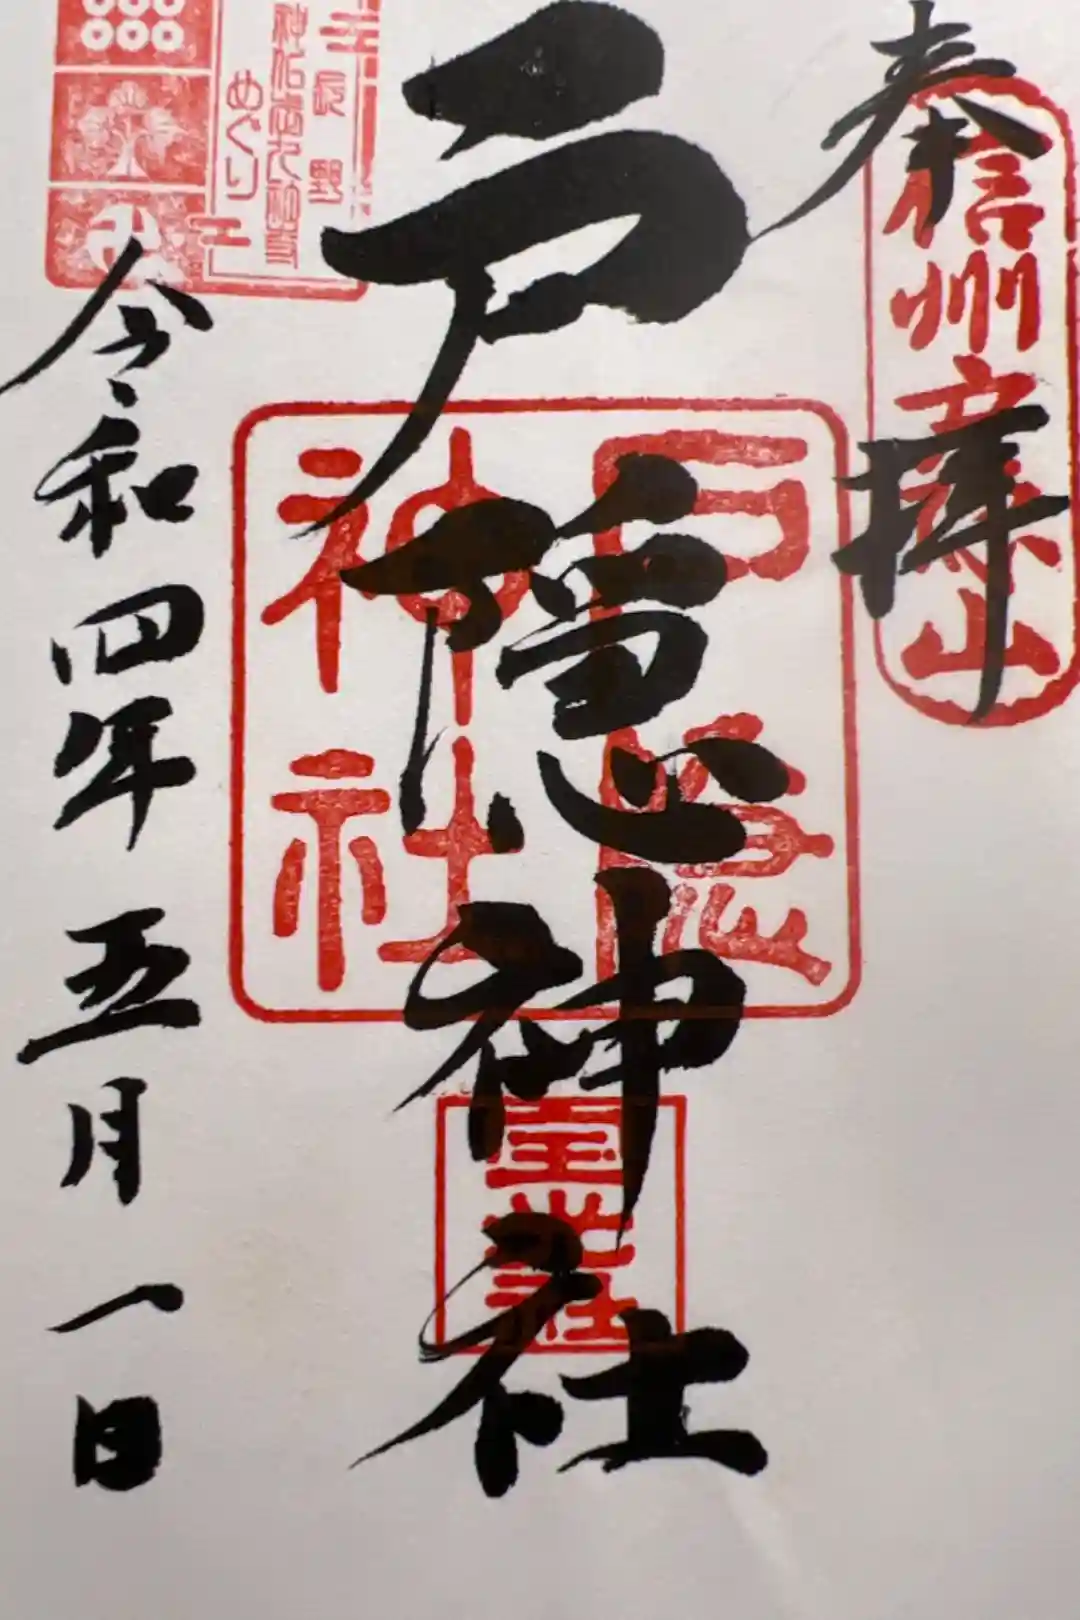 奉拝
信州戸隠山
戸隠神社
戸隠
神社
宝光社
長野
めぐり
令和四年五月一日